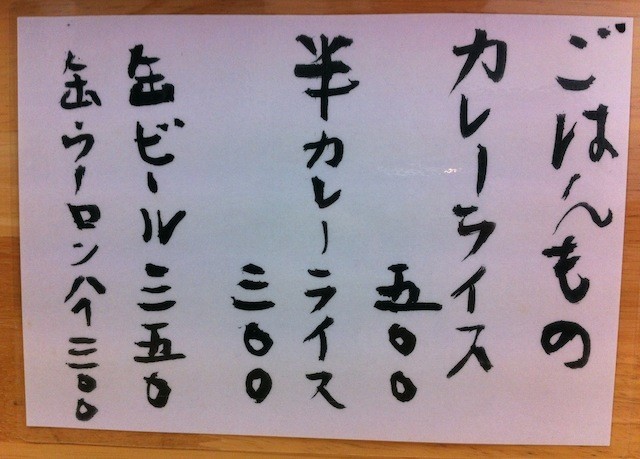 ごはんもの
カレーライス
五〇〇
半カレーライス
三〇〇
缶ビール三五〇
缶ウーロンハイ三〇〇